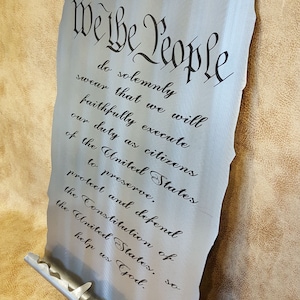 We the People
do solemnly
swear that we will
faithfully execute
our duty as citizens
of the United States
to preserve,
protect and defend
the Constitution of
the United States, so
help us God.